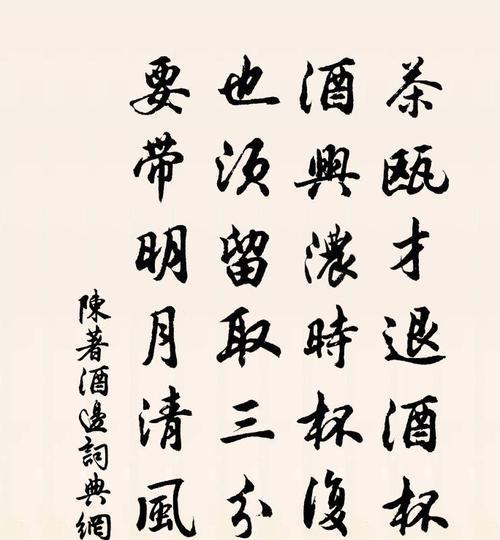 茶甌才退酒杯
酒興濃時杯復
也須留取三分
要帶明月清風
陳著酒邊詞典網